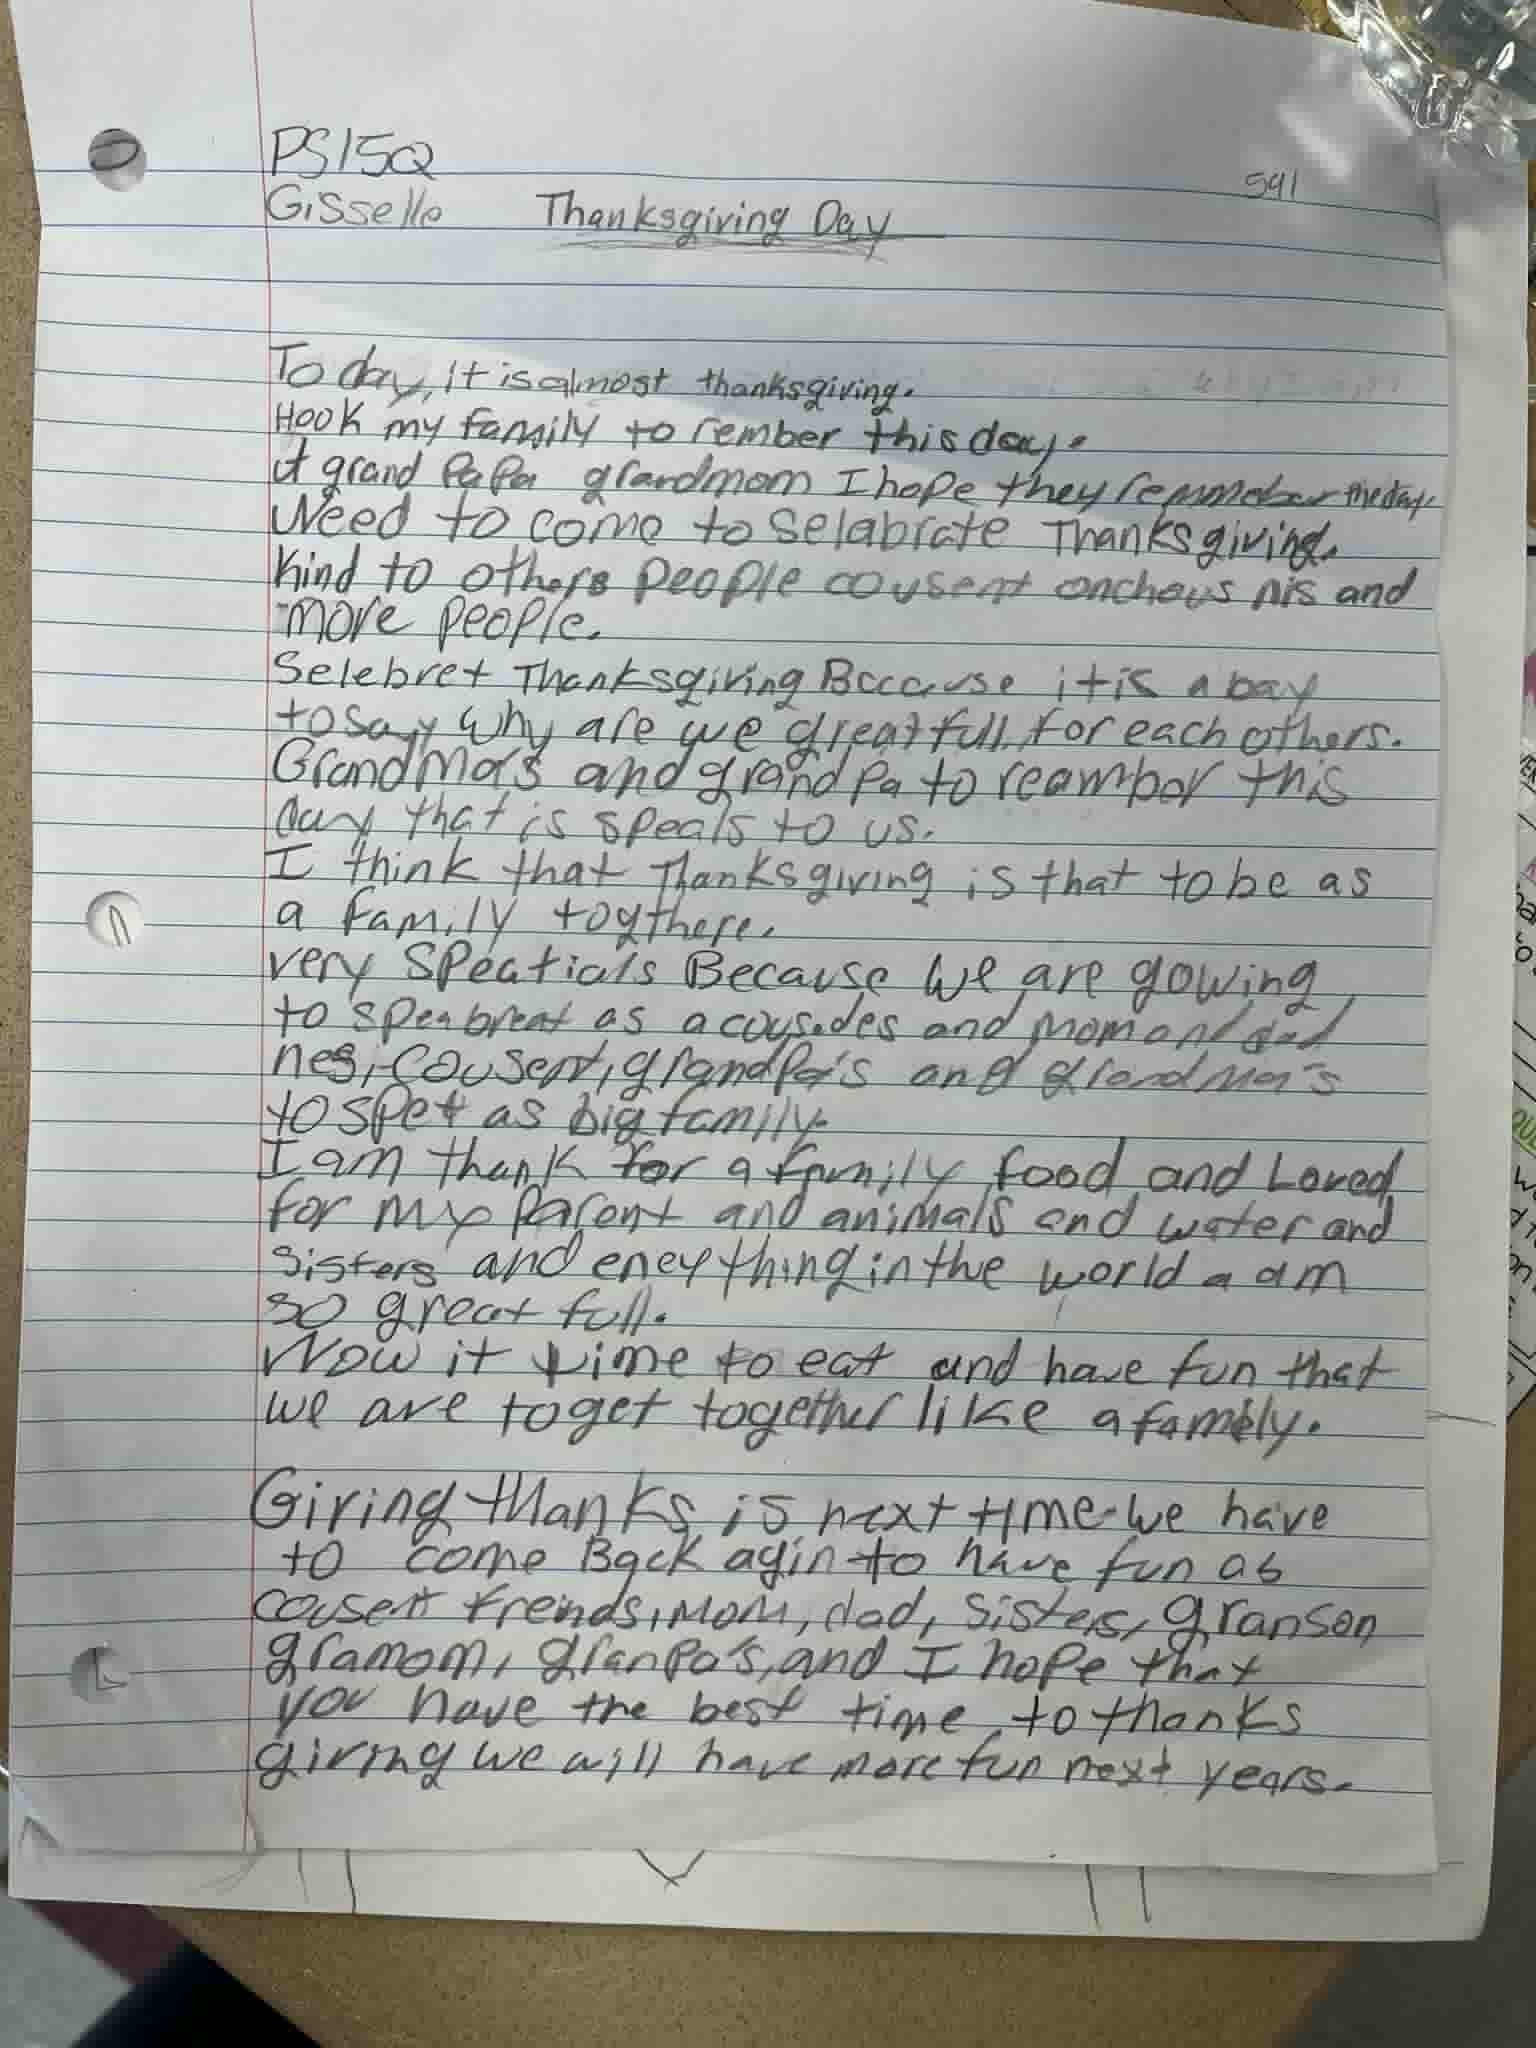 PS15Q
591
Gisselle Thanksgiving Day
Today, it is almost thanksgiving.
Hook my family to rember this day.
A grand PaPa grandmom I hope they remmebar the day.
Need to come to Selabrate Thanksgiving.
Kind to others People cousent and
more people.
Selebret Thanksgiving Because it is a bay
to say why are we greatfull for each others.
Grandma's and grandpa to reambor this
day that is speals to us.
I think that Thanksgiving is that to be as
a family togthere.
very Speatials Because we are gowing
to as a and mom and dad
cousent, grandpa's and grandma's
to spet as big family.
I am thank for a family food and Loved
for my Parent and animals and water and
Sisters and eneything in the world a am
so great full.
Now it time to eat and have fun that
we are toget together like a family.
Giving thanks is next time we have
to come Back agin to have fun as
cousent freinds, MOM, dad, Sisters, granson
gramom, granpa's, and I hope that
you have the best time to thanks
giving we will have more fun next years.